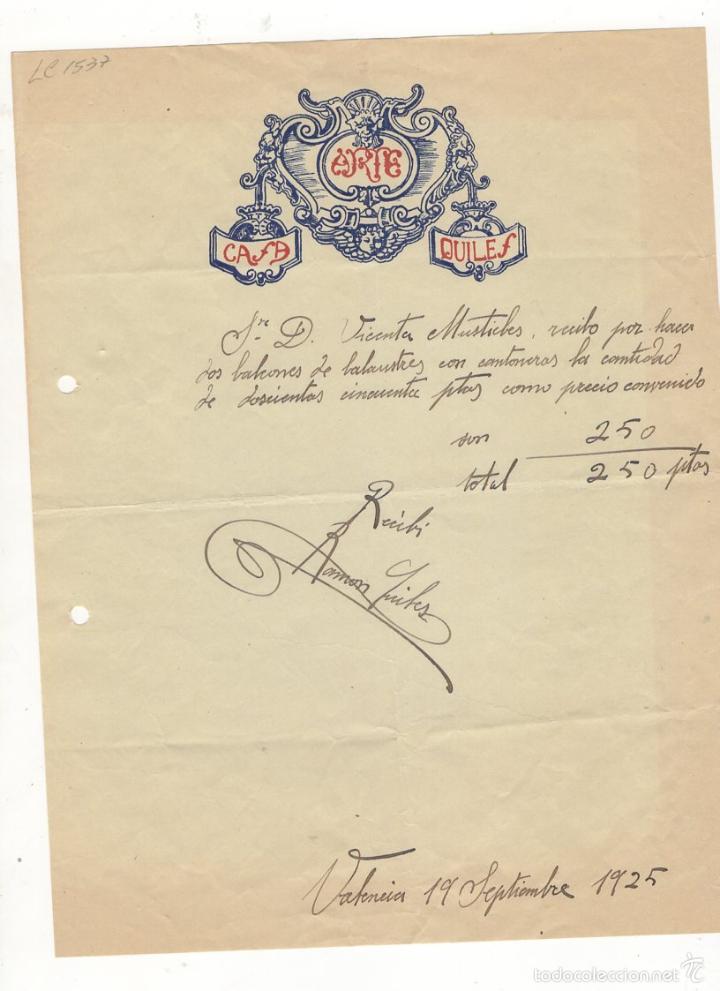 LC 1537
ARTE
CASA QUILES
Sr. D. Vicente Mustieles, recibo por hacer
dos balcones de balaustres con cantoneras la cantidad
de doscientas cincuenta ptas como precio convenido
son 250
total 250 ptas
Recibí
Ramon Quiles
Valencia 19 Septiembre 1925
todocoleccion.net